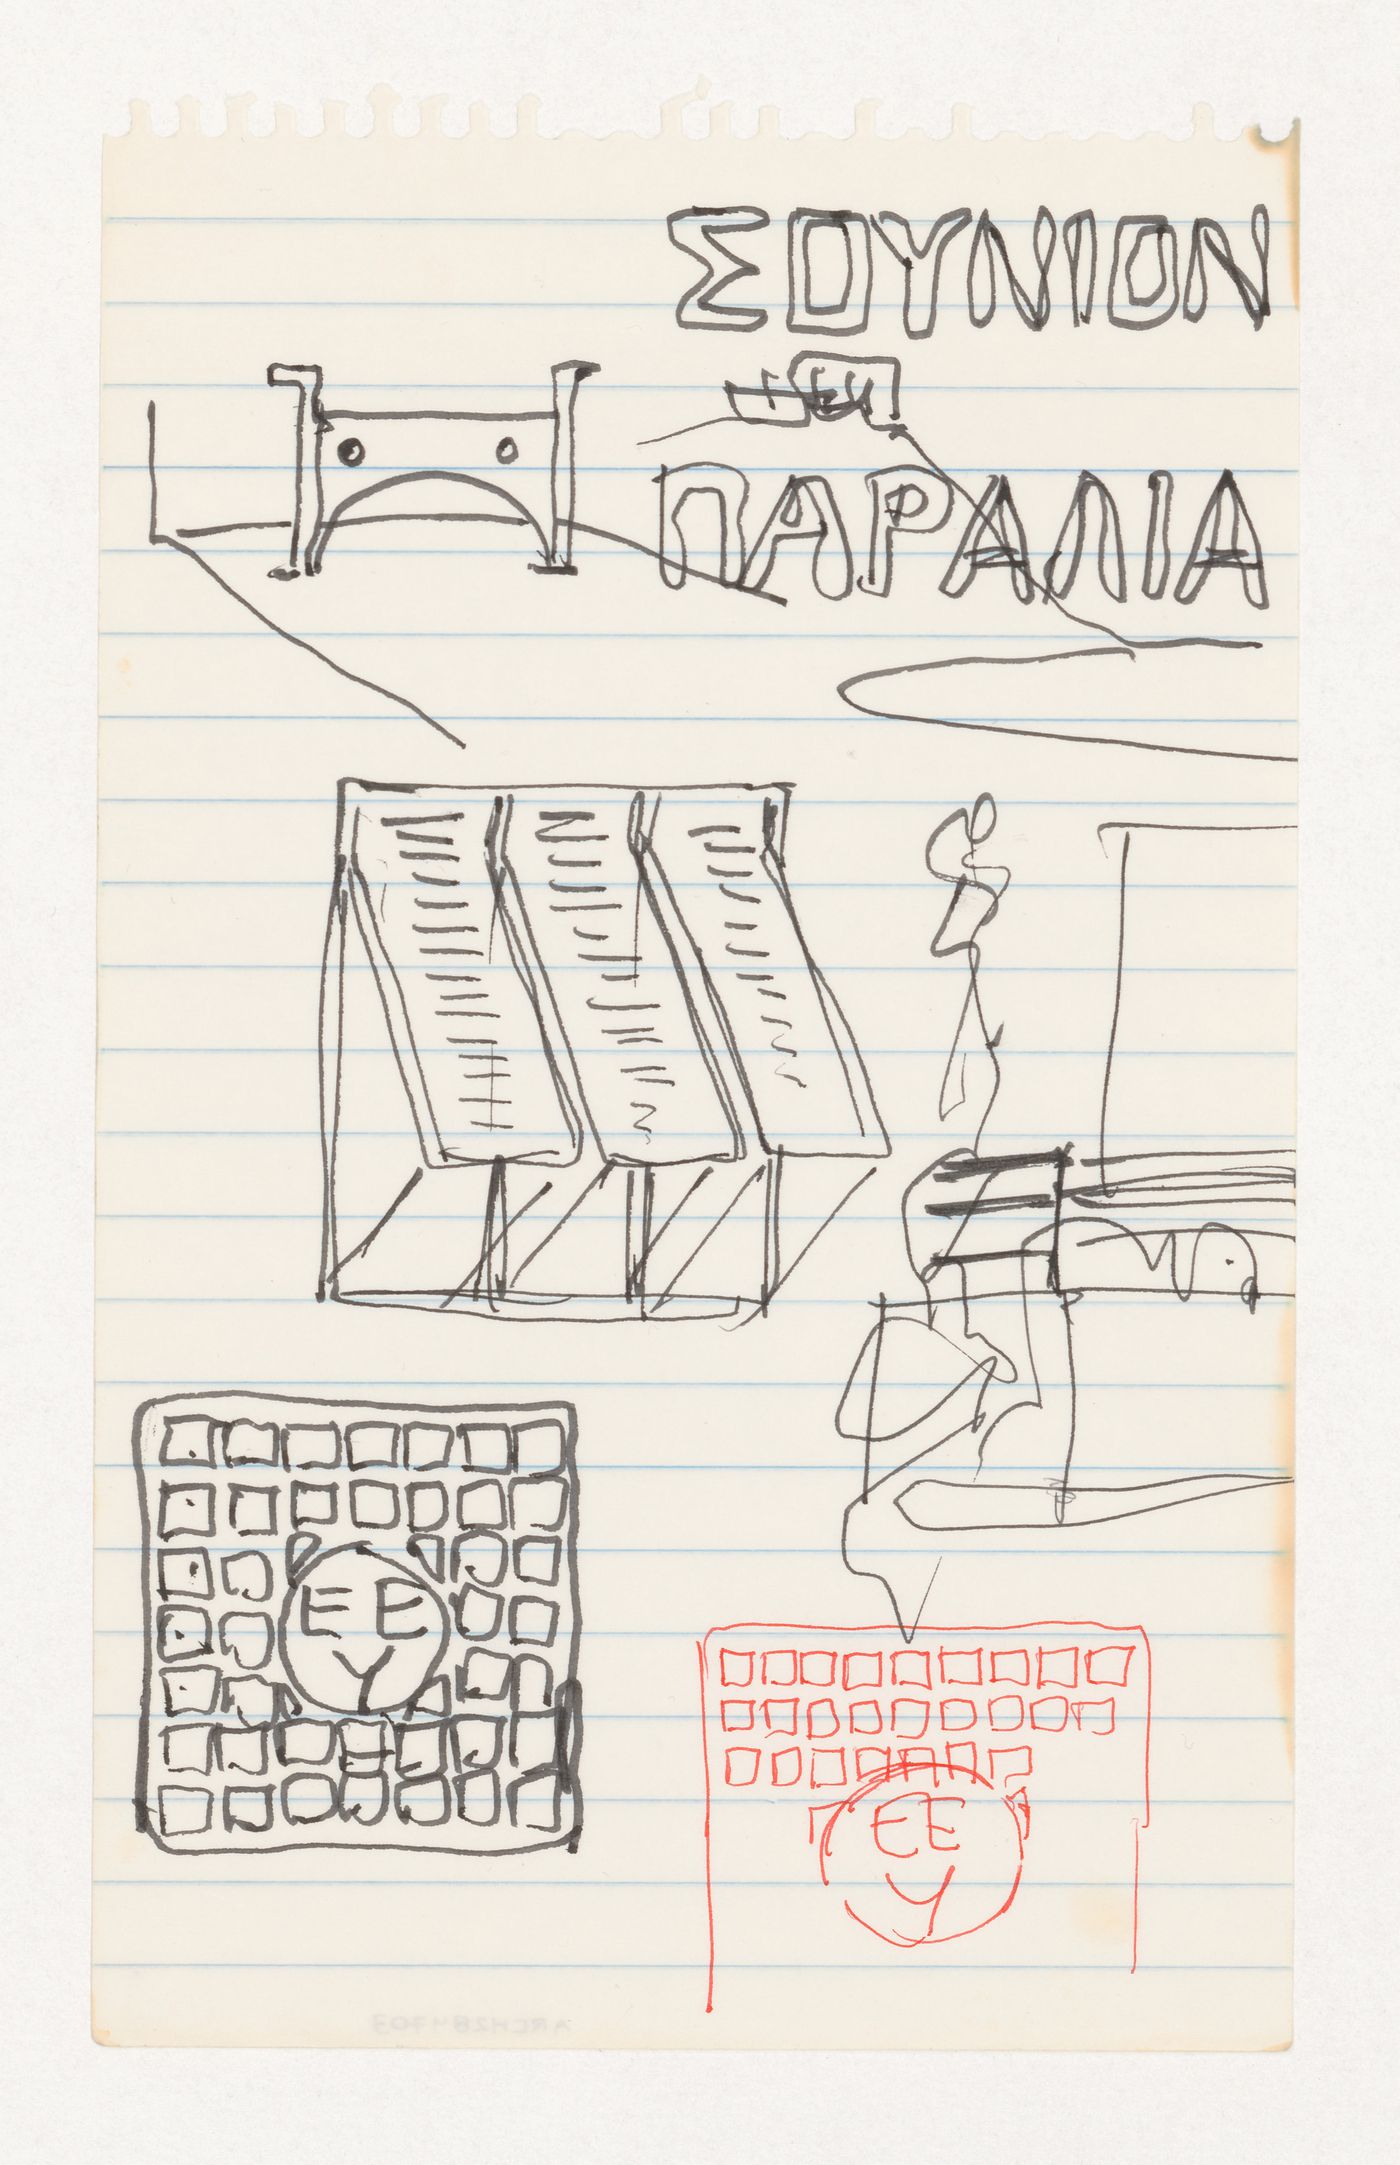 ΣΟΥΝΙΟΝ
ΠΑΡΑΛΙΑ
Ε Ε
Υ
Ε Ε
Υ
ARCH284703